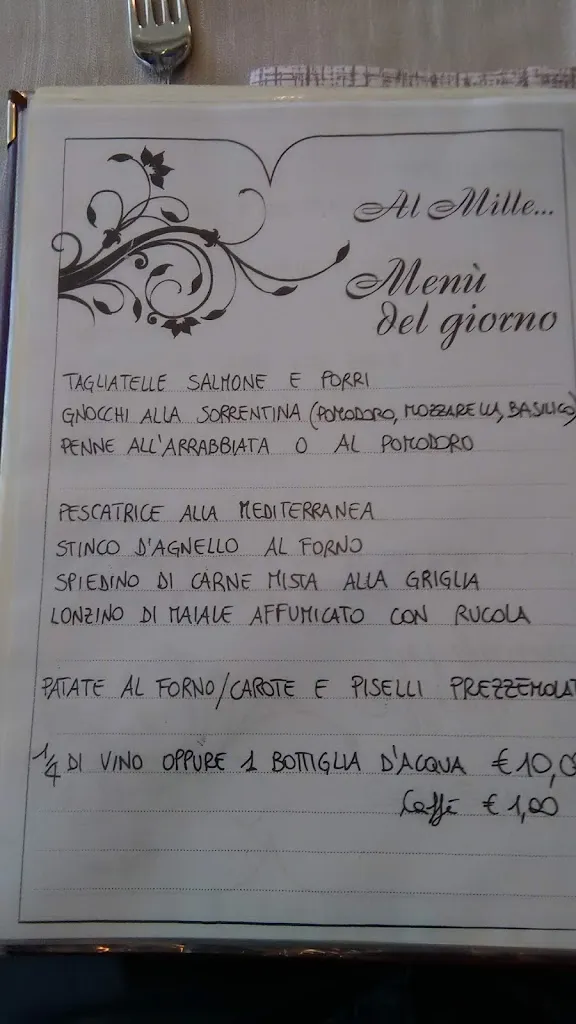 Al Mille...
Menù
del giorno
TAGLIATELLE SALMONE E PORRI
GNOCCHI ALLA SORRENTINA (POMODORO, MOZZARELLA, BASILICO)
PENNE ALL'ARRABBIATA O AL POMODORO
PESCATRICE ALLA MEDITERRANEA
STINCO D'AGNELLO AL FORNO
SPIEDINO DI CARNE MISTA ALLA GRIGLIA
LONZINO DI MAIALE AFFUMICATO CON RUCOLA
PATATE AL FORNO/CAROTE E PISELLI PREZZEMOLAT
1/4 DI VINO OPPURE 1 BOTTIGLIA D'ACQUA € 10,0
Caffè € 1,00